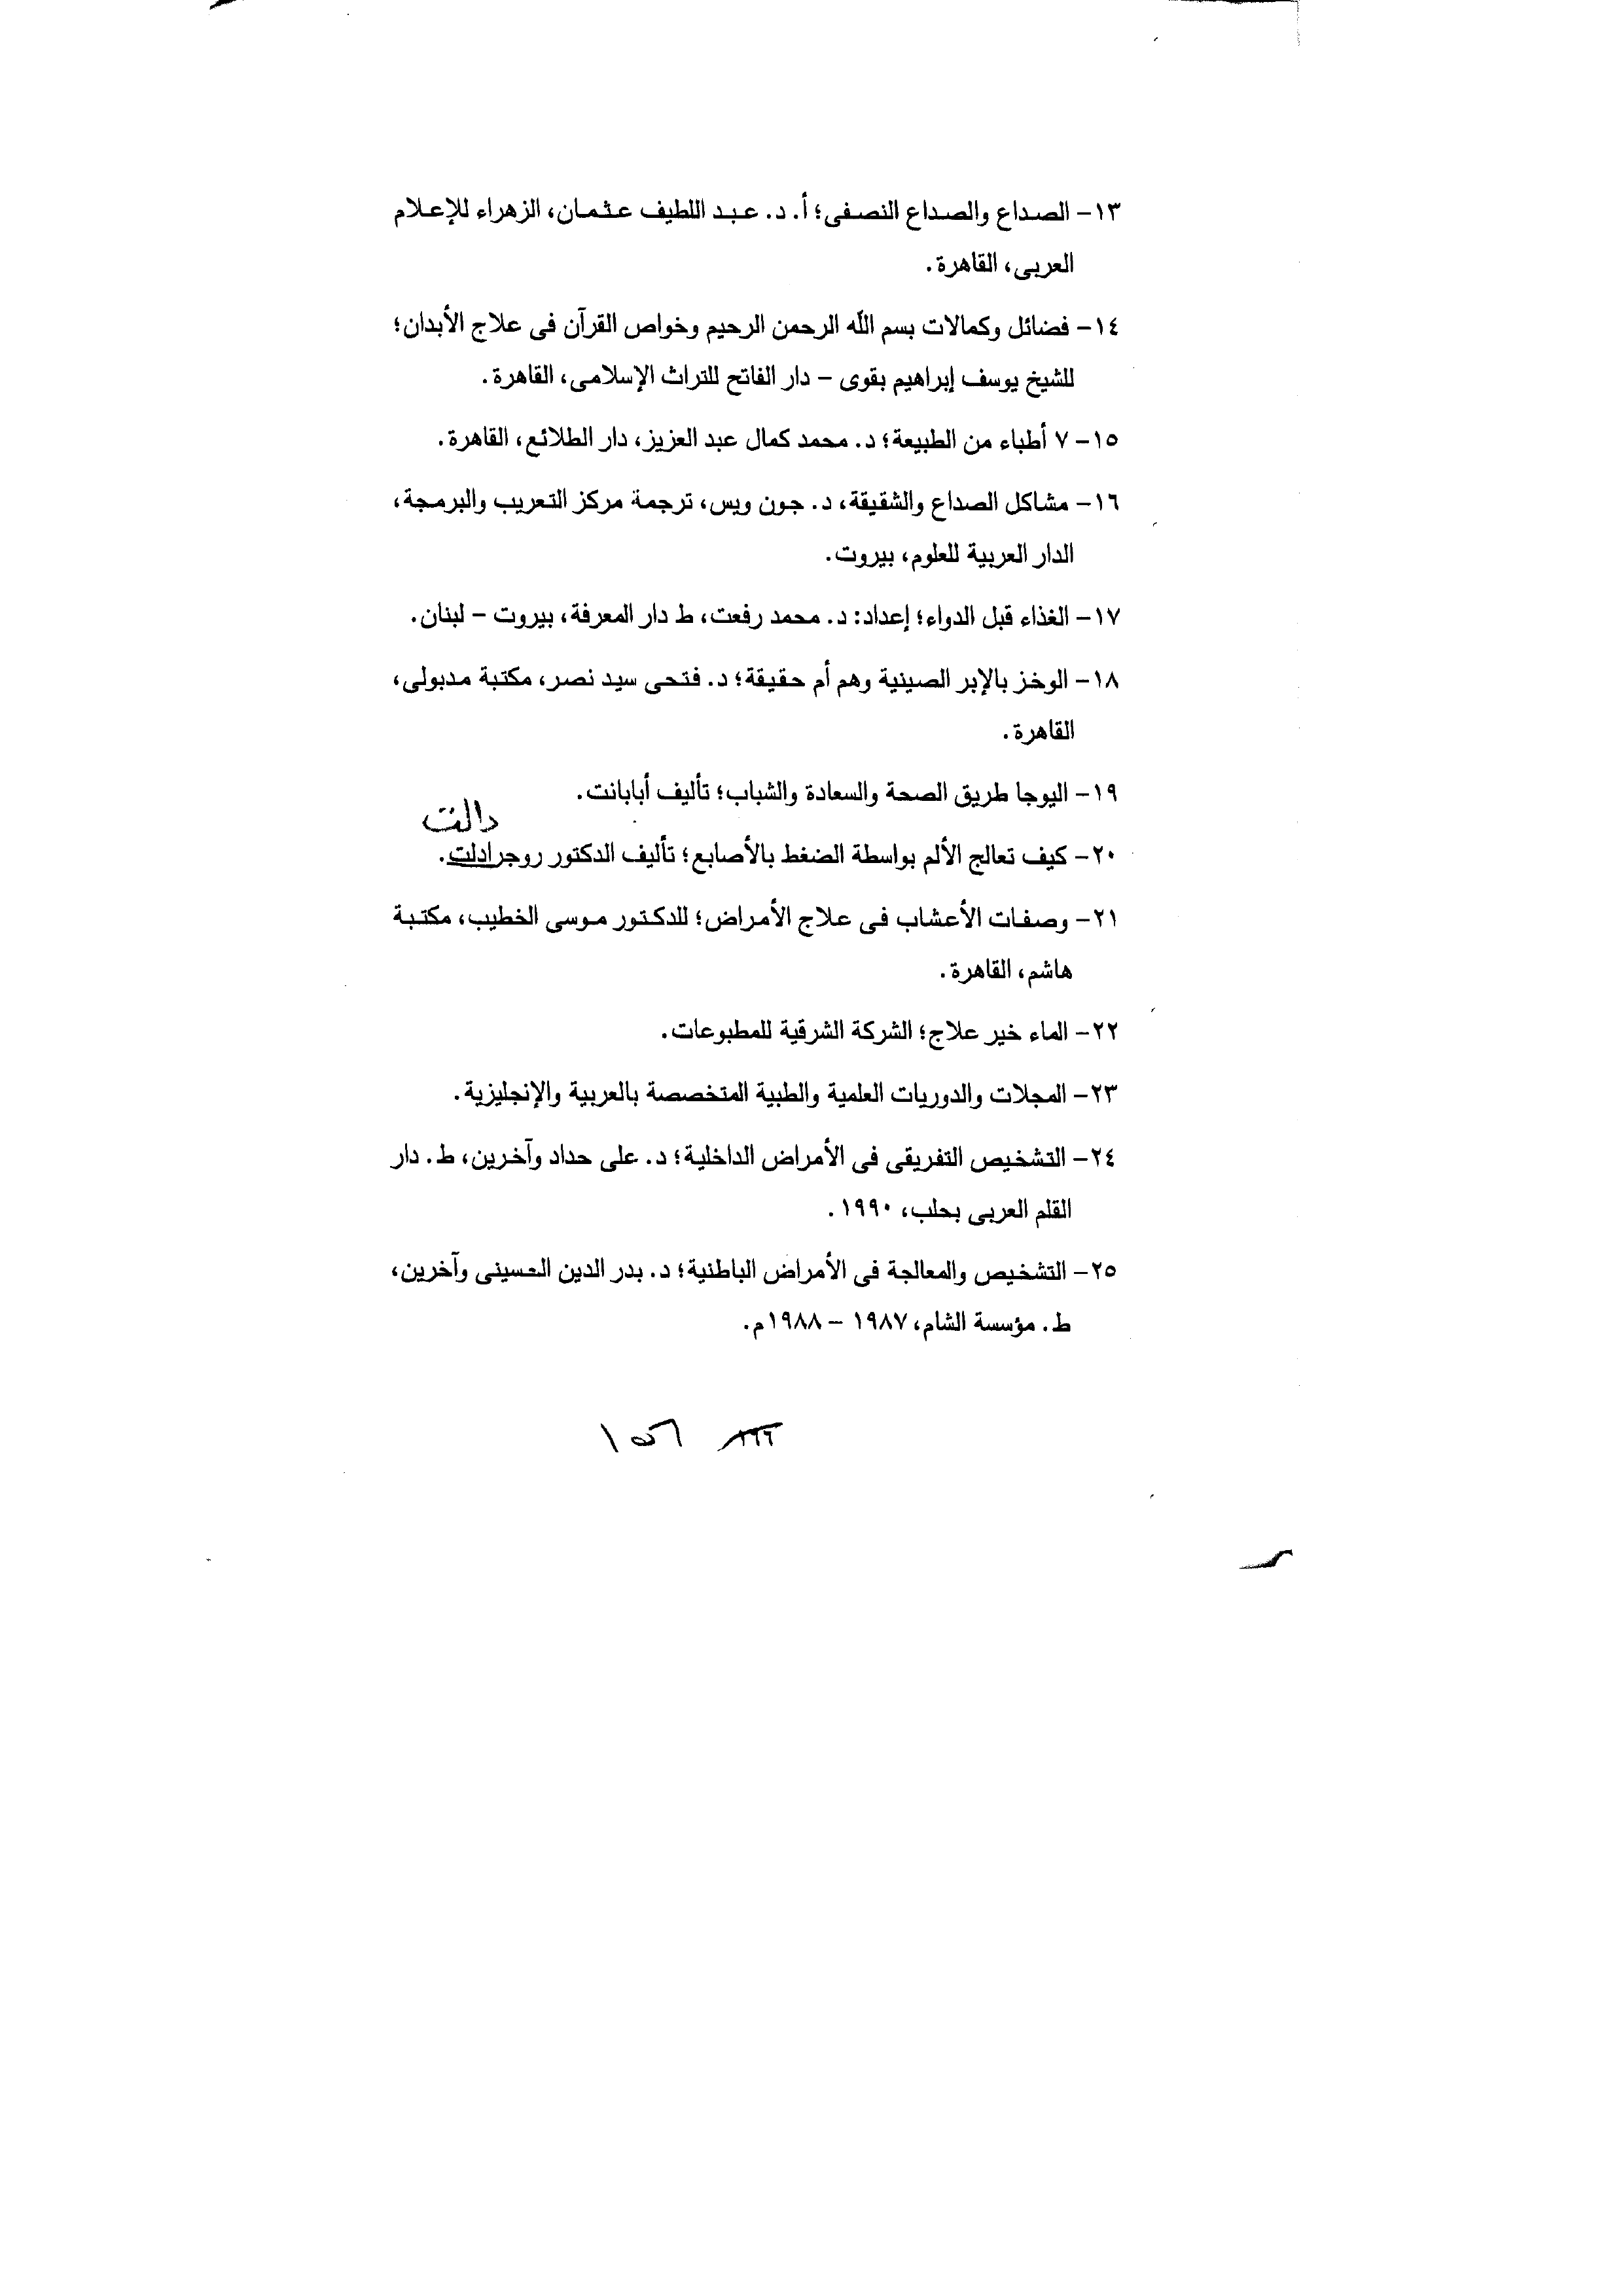 ١٣- الصداع والصداع النصفى؛ أ. د. عبد اللطيف عثمان، الزهراء للإعلام
العربى، القاهرة.
١٤- فضائل وكمالات بسم الله الرحمن الرحيم وخواص القرآن فى علاج الأبدان؛
للشيخ يوسف إبراهيم بقوى – دار الفاتح للتراث الإسلامى، القاهرة.
١٥- ٧ أطباء من الطبيعة؛ د. محمد كمال عبد العزيز، دار الطلائع، القاهرة.
١٦- مشاكل الصداع والشقيقة، د. جون ويس، ترجمة مركز التعريب والبرمجة،
الدار العربية للعلوم، بيروت.
١٧- الغذاء قبل الدواء؛ إعداد: د. محمد رفعت، ط دار المعرفة، بيروت – لبنان.
١٨- الوخز بالإبر الصينية وهم أم حقيقة؛ د. فتحى سيد نصر، مكتبة مدبولى،
القاهرة.
١٩- اليوجا طريق الصحة والسعادة والشباب؛ تأليف أبابانت.
دالت
٢٠- كيف تعالج الألم بواسطة الضغط بالأصابع؛ تأليف الدكتور روجرادلت.
٢١- وصفات الأعشاب فى علاج الأمراض؛ للدكتور موسى الخطيب، مكتبة
هاشم، القاهرة.
٢٢- الماء خير علاج؛ الشركة الشرقية للمطبوعات.
٢٣- المجلات والدوريات العلمية والطبية المتخصصة بالعربية والإنجليزية.
٢٤- التشخيص التفريقى فى الأمراض الداخلية؛ د. على حداد وآخرين، ط. دار
القلم العربى بحلب، ١٩٩٠.
٢٥- التشخيص والمعالجة فى الأمراض الباطنية؛ د. بدر الدين الحسينى وآخرين،
ط. مؤسسة الشام، ١٩٨٧ – ١٩٨٨م.